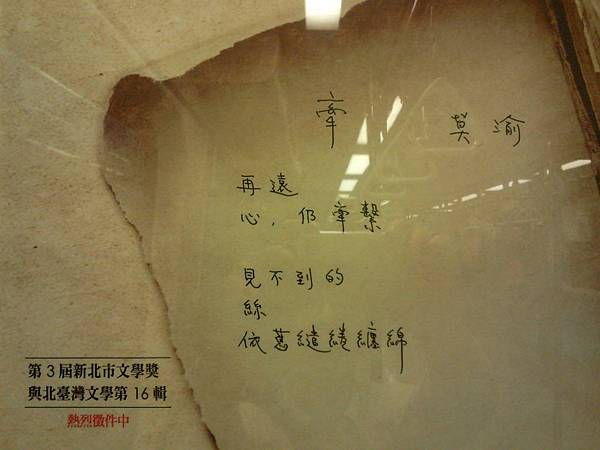 牽 莫渝
再遠
心，仍牽繫
見不到的
絲
依舊繾綣纏綿
第3屆新北市文學獎
與北臺灣文學第16輯
熱烈徵件中